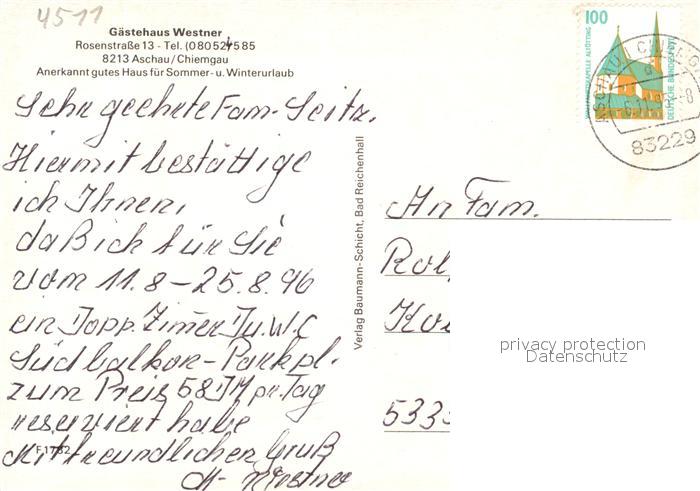 4511
Gästehaus Westner
Rosenstraße 13 - Tel. (08052) 4585
8213 Aschau/Chiemgau
Anerkannt gutes Haus für Sommer- u. Winterurlaub
Sehr geehrte Fam. Seitz.
Hiermit bestättige
ich Ihnen,
daß ich für Sie
vom 11.8-25.8.96
ein Dopp. Zimer Du. W.C
Südbalkon-Parkpl.
zum Preis 58 DM pr. Tag
reserviert habe
Mit freundlichen Gruß
M. Westner
F 1782
Verlag Baumann-Schicht, Bad Reichenhall
100
DEUTSCHE BUNDESPOST
83229
An Fam.
privacy protection
Datenschutz